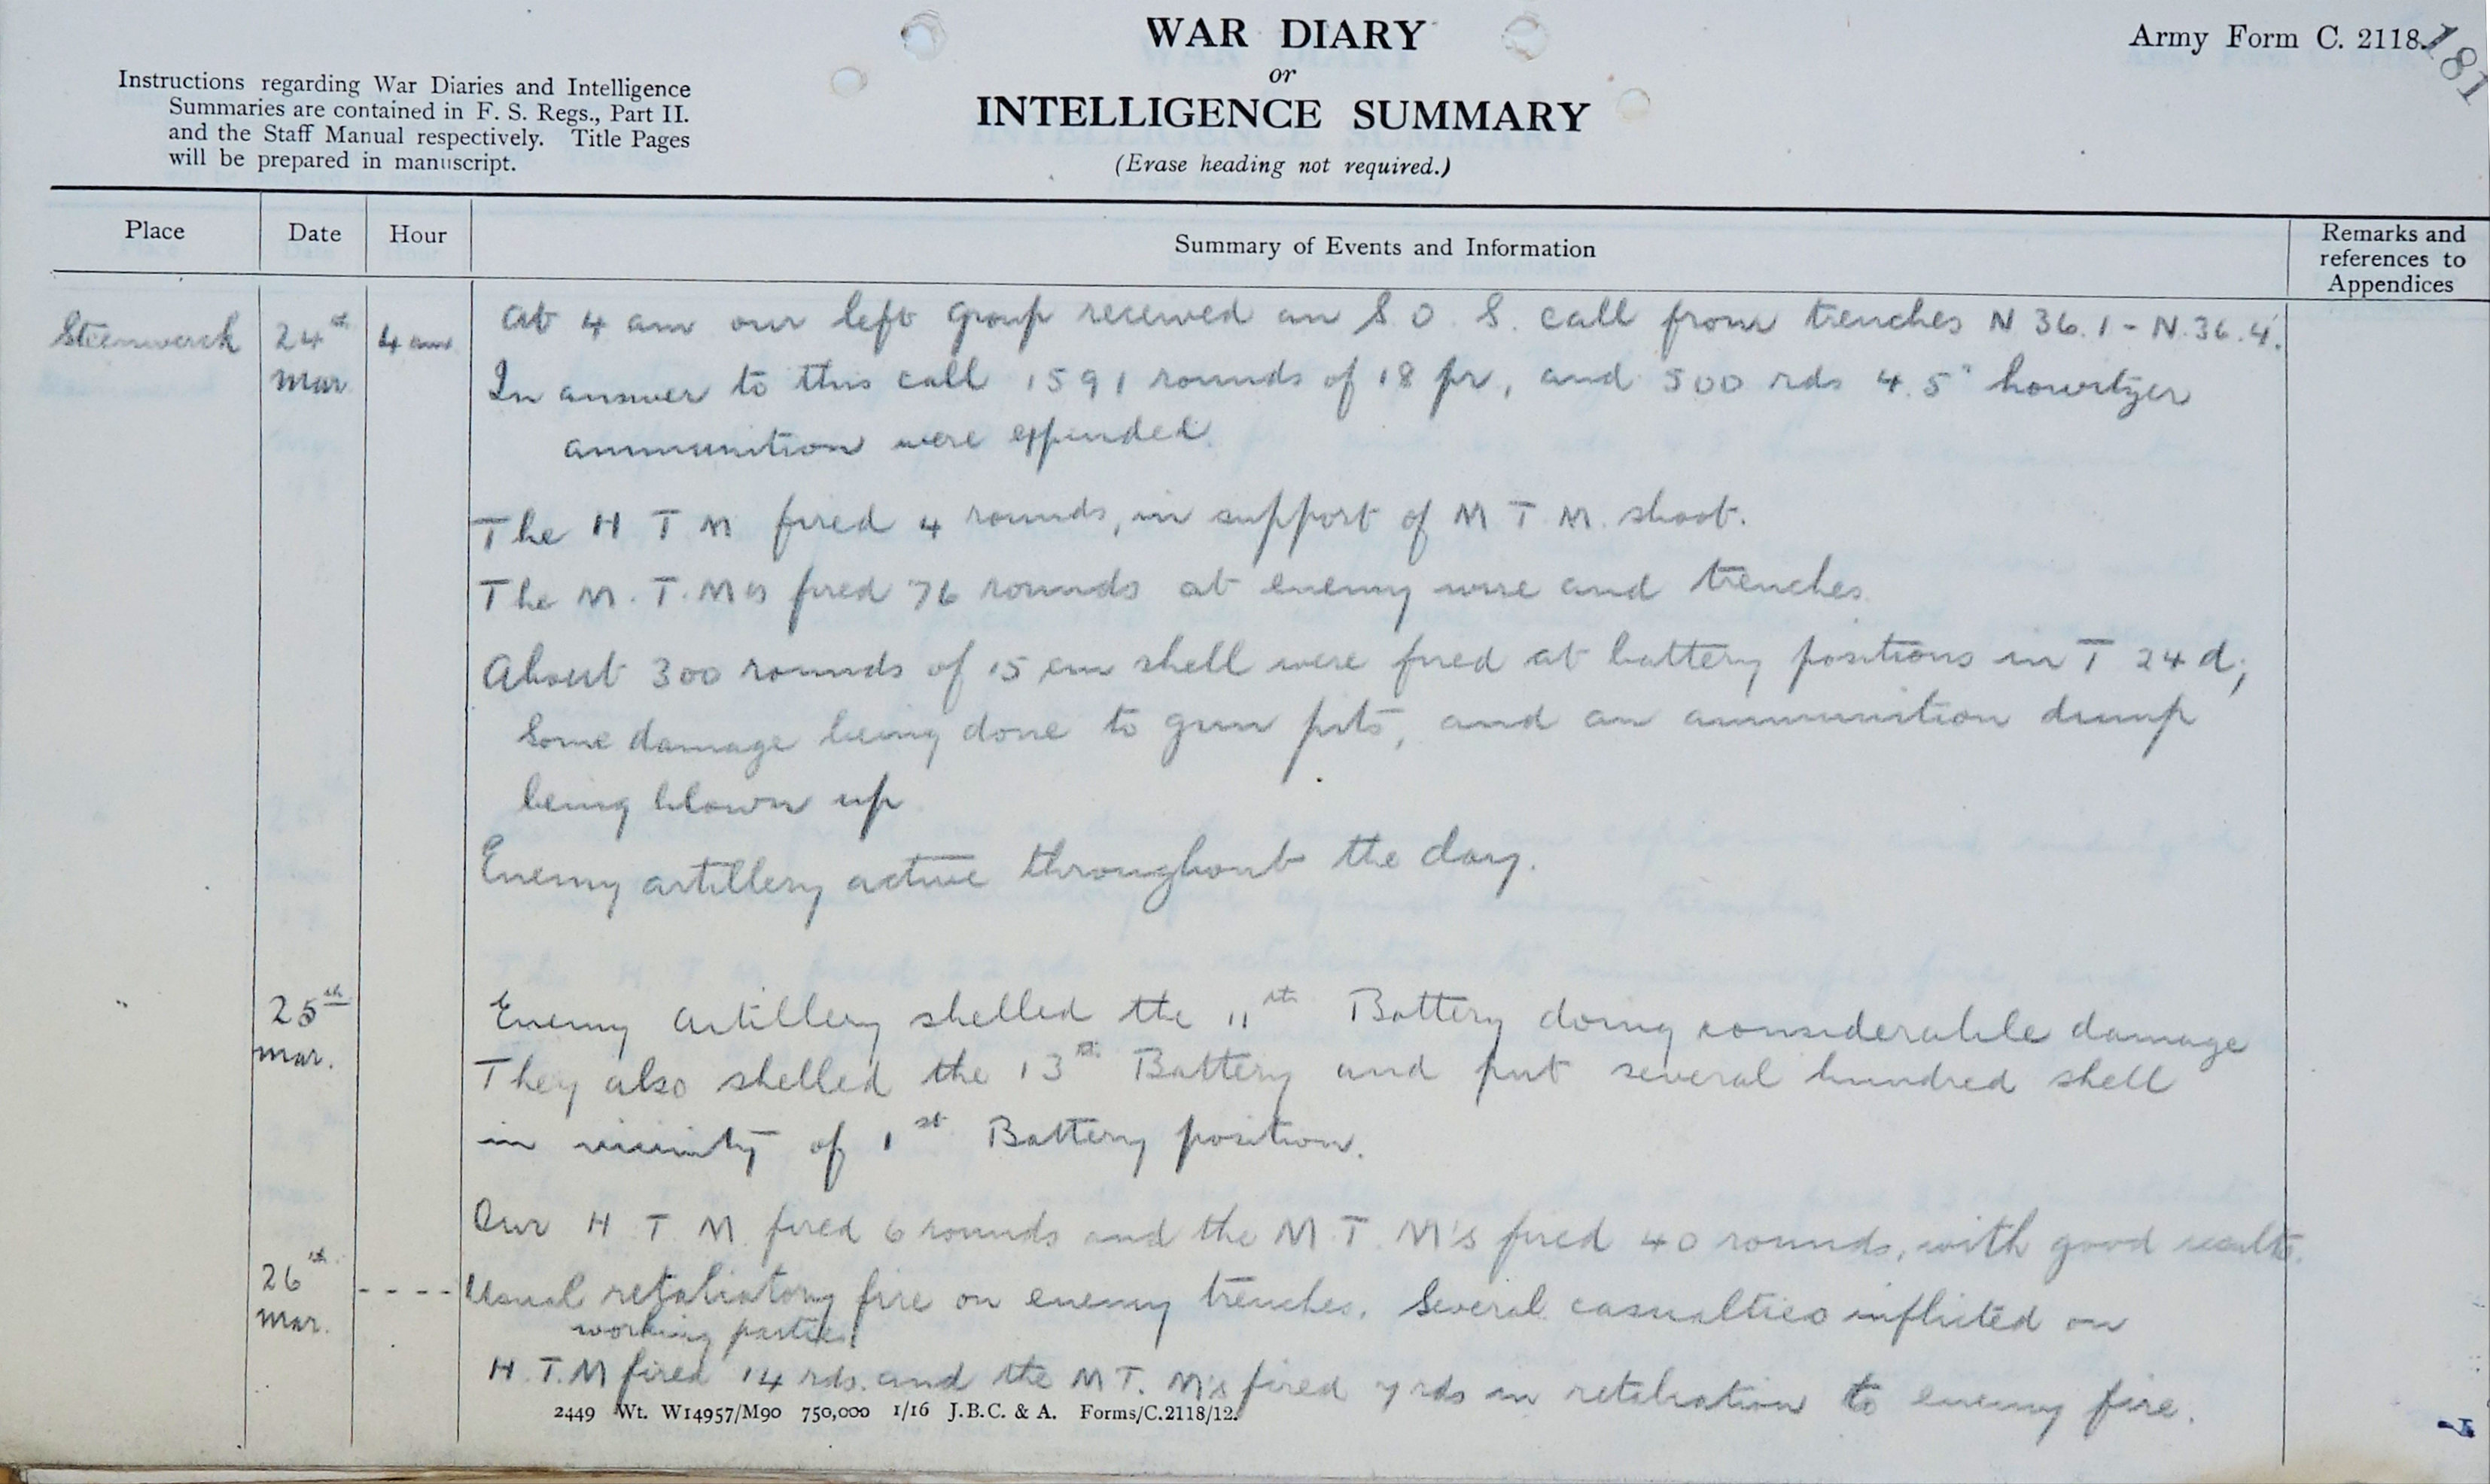 WAR DIARY
or
INTELLIGENCE SUMMARY
(Erase heading not required.)
Army Form C. 2118.
181
Instructions regarding War Diaries and Intelligence
Summaries are contained in F. S. Regs., Part II.
and the Staff Manual respectively. Title Pages
will be prepared in manuscript.
Place Date Hour Summary of Events and Information Remarks and
references to
Appendices
Steenwerck 24th Mar 4 am At 4 am our left group received an S.O.S. call from trenches N 36.1 - N.36.4.
In answer to this call 1591 rounds of 18 pr, and 500 rds 4.5" howitzer
ammunition were expended.
The H T M fired 4 rounds, in support of M T M. shoot.
The M.T.Ms fired 76 rounds at enemy wire and trenches
About 300 rounds of 15 cm shell were fired at battery positions in T 24 d,
Some damage being done to gun pits, and an ammunition dump
being blown up
Enemy artillery active throughout the day.
" 25th mar. Enemy artillery shelled the 11th Battery doing considerable damage
They also shelled the 13th Battery and put several hundred shell
in vicinity of 1st Battery position.
Our H T M fired 6 rounds and the M.T. M's fired 40 rounds, with good results.
26th mar. ---- Usual retaliatory fire on enemy trenches. Several casualties inflicted on
working parties
H.T.M fired 14 rds. and the M T. M's fired 7 rds in retaliation to enemy fire.
2449 Wt. W14957/M90 750,000 1/16 J.B.C. & A. Forms/C.2118/12.